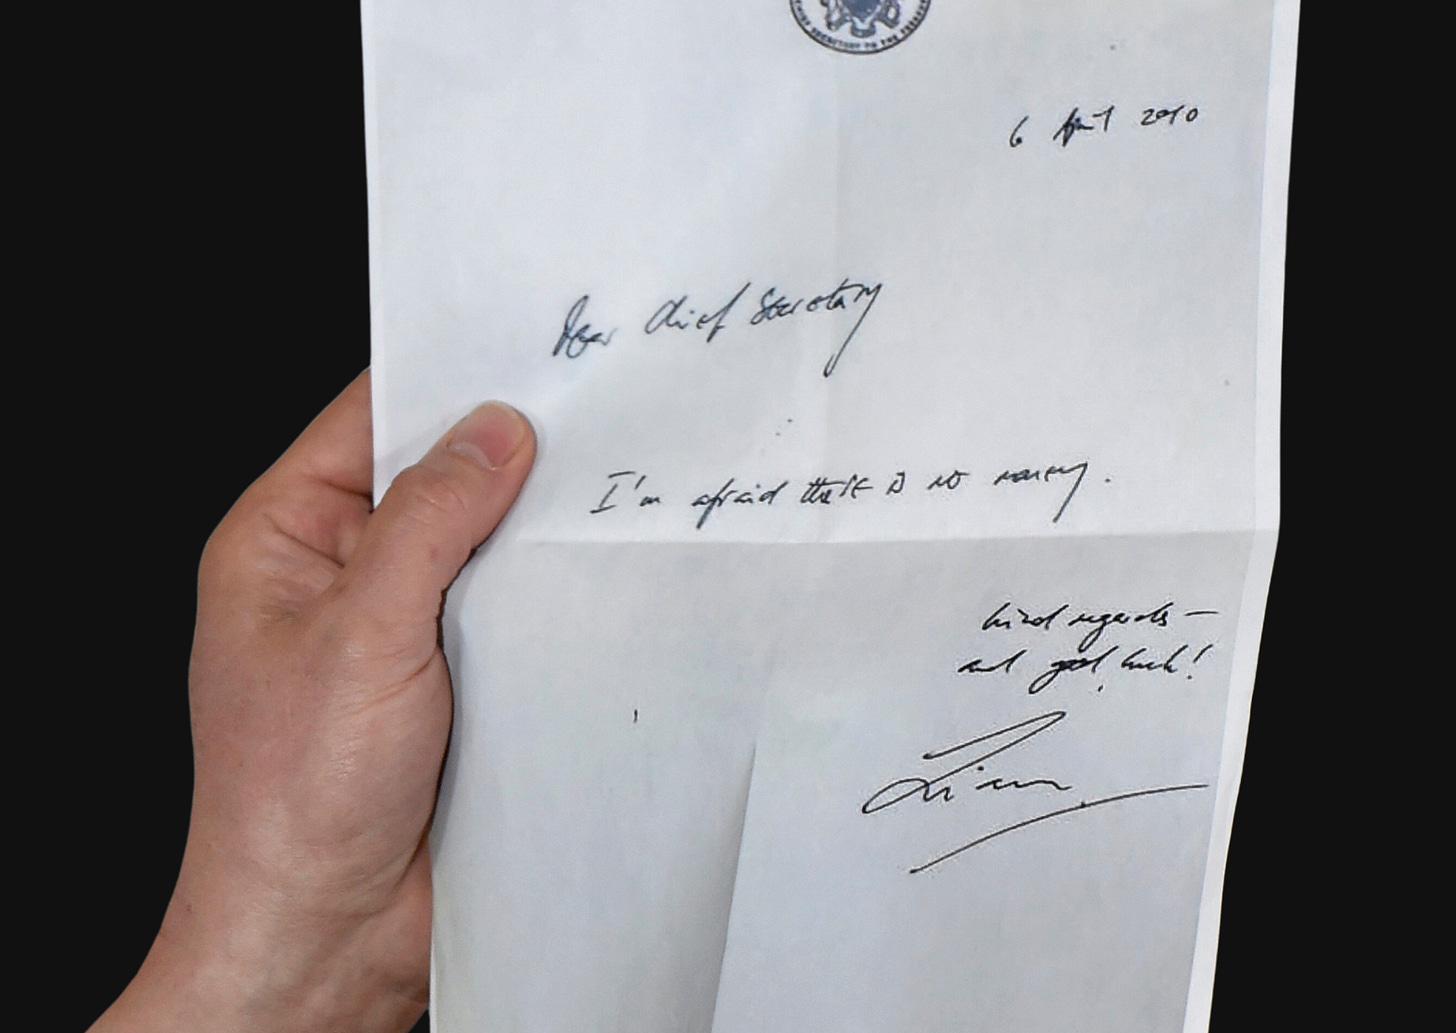 SECRETARY TO THE TREASURY
6 April 2010
Dear Chief Secretary
I'm afraid there is no money.
kind regards —
and good luck!
Liam